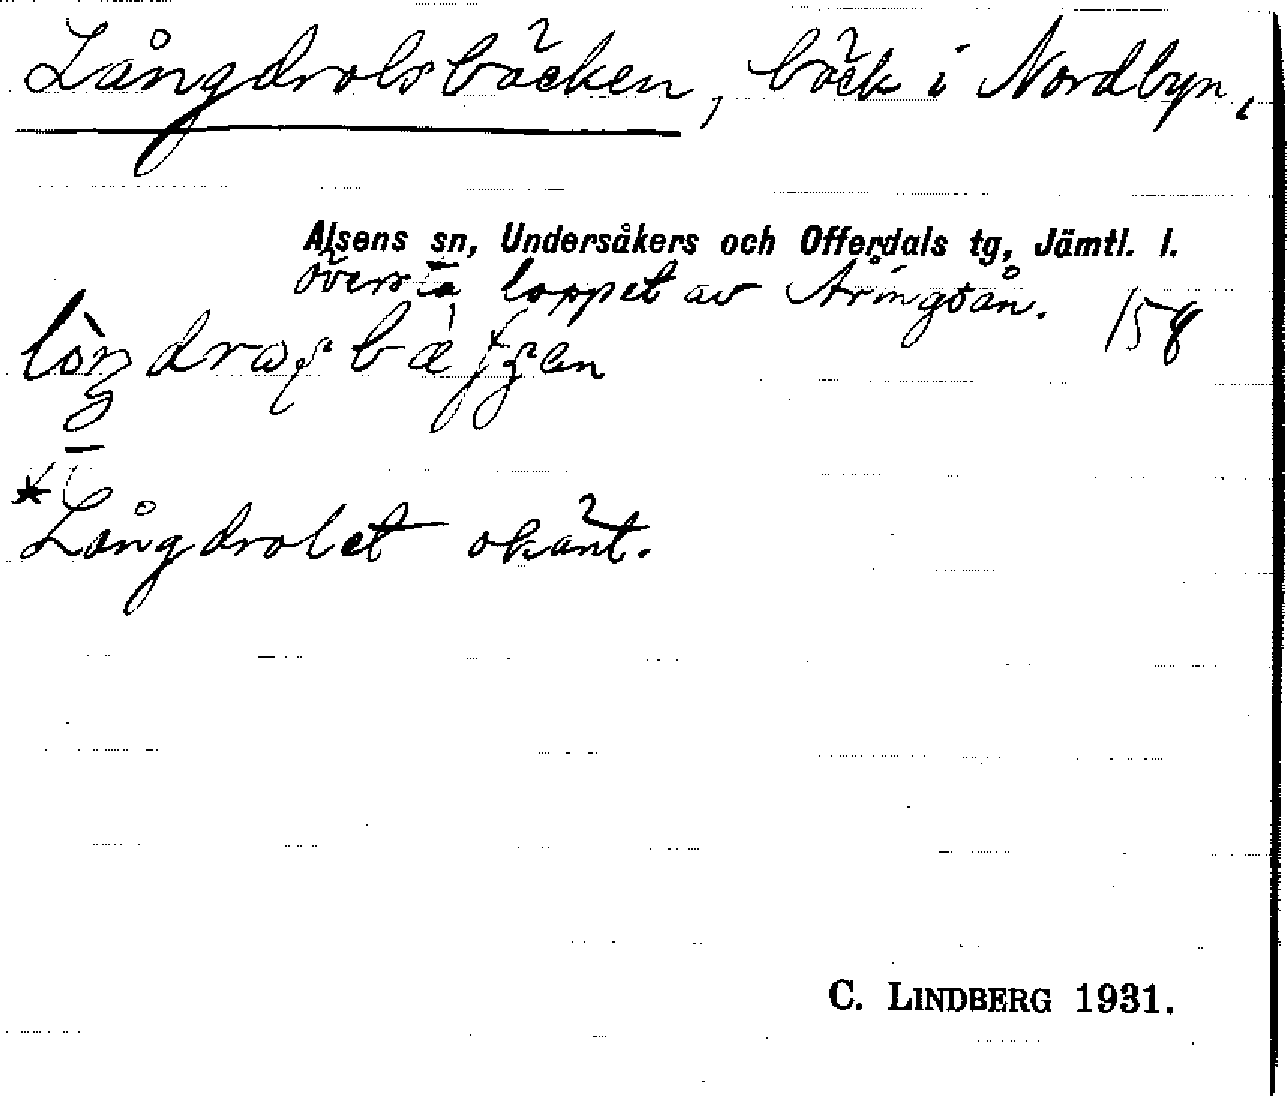 Långdrolsbäcken, bäck i Nordbyn,
Alsens sn, Undersåkers och Offerdals tg, Jämtl. l.
översta loppet av Åringsån. 158
*Långdrolet okänt.
C. LINDBERG 1931.